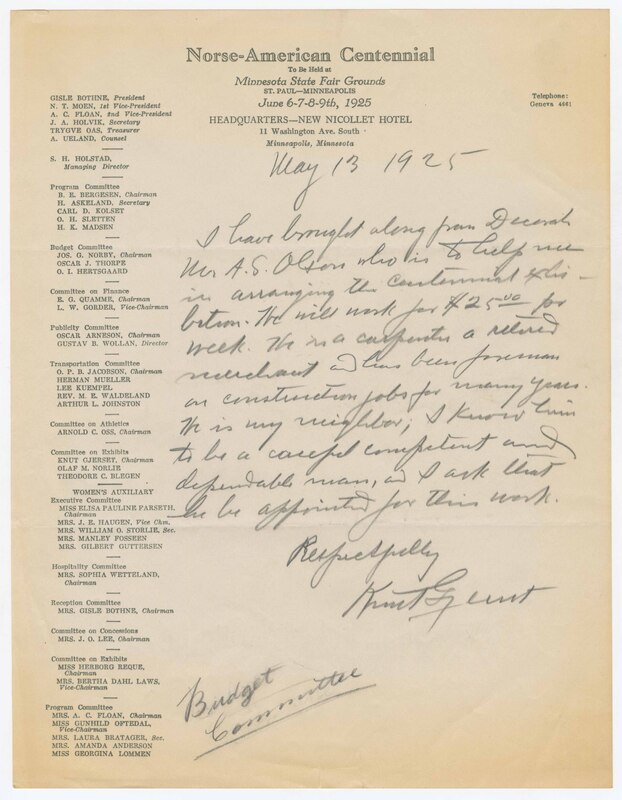 Norse-American Centennial
To Be Held at
Minnesota State Fair Grounds
ST. PAUL—MINNEAPOLIS
June 6-7-8-9th, 1925
HEADQUARTERS—NEW NICOLLET HOTEL
11 Washington Ave. South
Minneapolis, Minnesota
Telephone:
Geneva 4461
GISLE BOTHNE, President
N. T. MOEN, 1st Vice-President
A. C. FLOAN, 2nd Vice-President
J. A. HOLVIK, Secretary
TRYGVE OAS, Treasurer
A. UELAND, Counsel
S. H. HOLSTAD,
Managing Director
Program Committee
B. E. BERGESEN, Chairman
H. ASKELAND, Secretary
CARL D. KOLSET
O. H. SLETTEN
H. K. MADSEN
Budget Committee
JOS. G. NORBY, Chairman
OSCAR J. THORPE
O. I. HERTSGAARD
Committee on Finance
E. G. QUAMME, Chairman
L. W. GORDER, Vice-Chairman
Publicity Committee
OSCAR ARNESON, Chairman
GUSTAV B. WOLLAN, Director
Transportation Committee
O. P. B. JACOBSON, Chairman
HERMAN MUELLER
LEE KUEMPEL
REV. M. E. WALDELAND
ARTHUR L. JOHNSTON
Committee on Athletics
ARNOLD C. OSS, Chairman
Committee on Exhibits
KNUT GJERSET, Chairman
OLAF M. NORLIE
THEODORE C. BLEGEN
WOMEN'S AUXILIARY
Executive Committee
MISS ELISA PAULINE FARSETH,
Chairman
MRS. J. E. HAUGEN, Vice Chm.
MRS. WILLIAM O. STORLIE, Sec.
MRS. MANLEY FOSSEEN
MRS. GILBERT GUTTERSEN
Hospitality Committee
MRS. SOPHIA WETTELAND,
Chairman
Reception Committee
MRS. GISLE BOTHNE, Chairman
Committee on Concessions
MRS. J. O. LEE, Chairman
Committee on Exhibits
MISS HERBORG REQUE,
Chairman
MRS. BERTHA DAHL LAWS,
Vice-Chairman
Program Committee
MRS. A. C. FLOAN, Chairman
MISS GUNHILD OFTEDAL,
Vice-Chairman
MRS. LAURA BRATAGER, Sec.
MRS. AMANDA ANDERSON
MISS GEORGINA LOMMEN
May 13 1925
I have brought along from Decorah
Mr A. S. Olson who is to help me
in arranging the centennial exhi-
bition. He will work for $25 00 for
week. He is a carpenter a retired
merchant and has been foreman
on construction jobs for many years.
He is my neighbor; I know him
to be a careful competent and
dependable man, and I ask that
he be appointed for this work.
Respectfully
Knut Gjerset
Budget
Committee